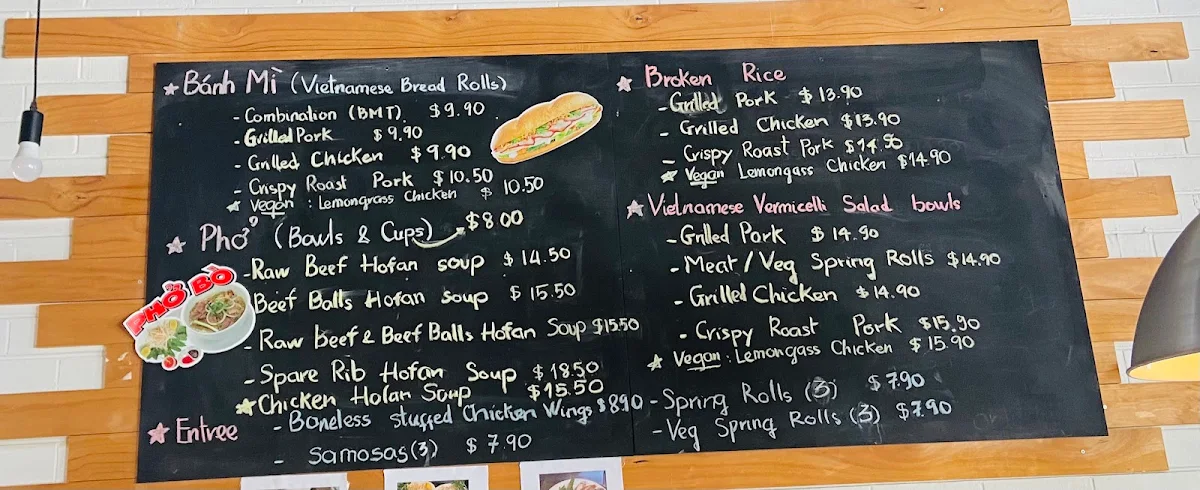 ★ Bánh Mì (Vietnamese Bread Rolls)
- Combination (BMT) $9.90
- Grilled Pork $9.90
- Grilled Chicken $9.90
- Crispy Roast Pork $10.50
★ Vegan : Lemongrass Chicken $10.50
★ Phở (Bowls & Cups) $8.00
- Raw Beef Hofan soup $14.50
Beef Balls Hofan soup $15.50
- Raw beef & Beef Balls Hofan Soup $15.50
- Spare Rib Hofan Soup $18.50
★ Chicken Hofan Soup $15.50
★ Entree
- Boneless stuffed Chicken Wings $8.90
- Samosas (3) $7.90
PHỞ BÒ
★ Broken Rice
- Grilled Pork $13.90
- Grilled Chicken $13.90
- Crispy Roast Pork $14.90
★ Vegan Lemongass Chicken $14.90
★ Vietnamese Vermicelli Salad bowls
- Grilled Pork $14.90
- Meat / Veg Spring Rolls $14.90
- Grilled Chicken $14.90
- Crispy Roast Pork $15.90
★ Vegan : Lemongass Chicken $15.90
- Spring Rolls (3) $7.90
- Veg Spring Rolls (3) $7.90